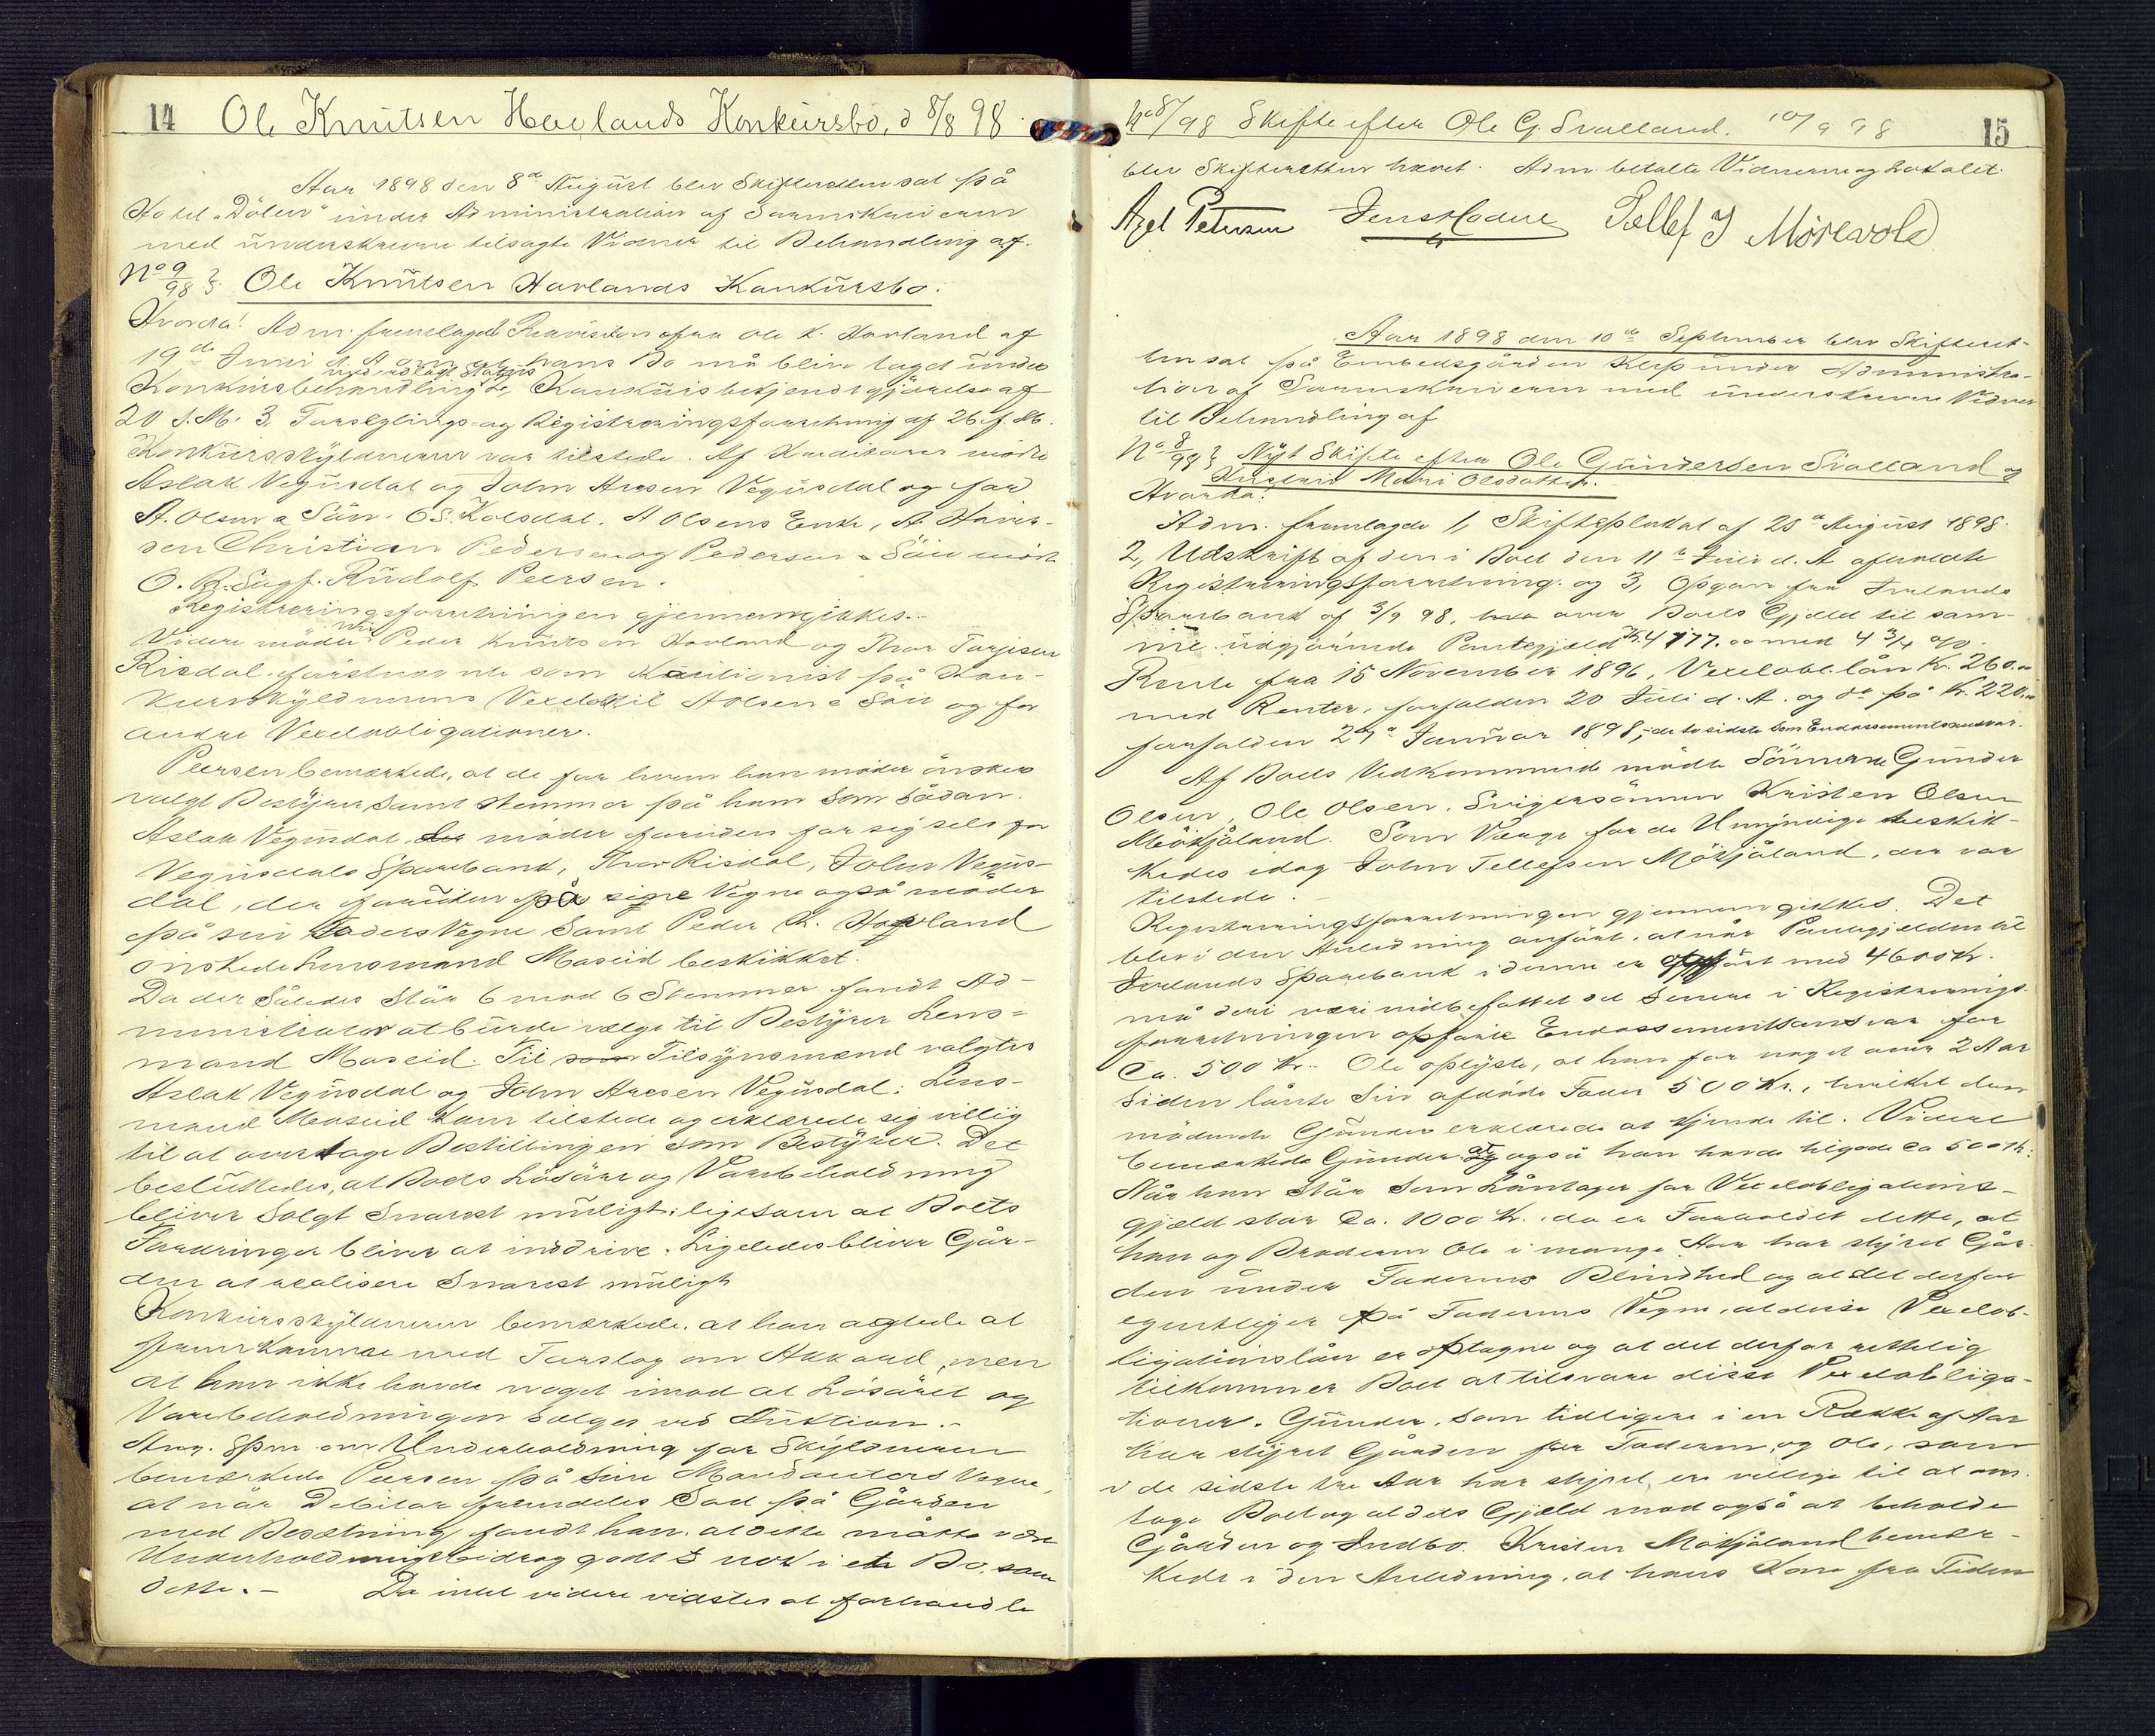 14 Ole Knutsen Havlands Konkursbo, d 8/8 98
Aar 1898 den 8de August blev Skifteretten sat på
Hotel "Dölen" under Administration af Sorenskriveren
med underskrevne tilsagte Vidner til Behandling af.
No 9/98 Ole Knutsen Havlands Konkursbo.
Hvorda! Adm. fremlagde Rekvisition fra Ole K. Havland af
19de Juni d. A. om at hans Bo må blive taget under
Konkursbehandling vedlagt Status 2, Konkursbekjendtgjörelse af
20 s. M. 3, Forseglings- og Registreringsforretning af 26 f. M.
Konkursskyldneren var tilstede. Af Kreditorer mödte
Aslak Vegusdal og John Aresen Vegusdal og for
A. Olsen & Sön. O S. Kolsdal. A Olsens Enke, A.
sen Christian Pedersen og Pedersen & Sön mödte
O. R. Sagf. Rudolf Peersen.
Registreringsforretningen gjennemgikkes.-
Videre mödte Peder Knutsen Havland og Thor Torjesen
Risdal, förstnævnte som Kautionist på Kon-
kursskyldnerens Vexelobl til A Olsen & Sön og for
andre Vexelobligationer.
Peersen bemærkede, at de for hvem han möder önsker
valgt Bestyrer, samt stemmer på ham som sådan.
Aslak Vegusdal, der möder foruden for sig selv for
Vegusdals Sparebank, Thor Risdal, John Vegus-
dal, der foruden på egne Vegne også möder
på sin Faders Vegne samt Peder K. Havland
önskede Lensmand Moseid beskikket.
Da der således står 6 mod 6 Stemmer fandt Ad-
ministrator at burde vælge til Bestyrer Lens-
mand Moseid. Til som Tilsynsmænd valgtes
Aslak Vegusdal og John Aresen Vegusdal. Lens-
mand Moseid kom tilstede og erklærede sig villig
til at overtage Bestillingen som Bestyrer. Det
besluttedes, at Boets Lösöre og Varebeholdning
bliver solgt snarest muligt, ligesom at Boets
Fordringer bliver at inddrive. Ligeledes bliver Går-
den at realisere snarest muligt
Konkursskyldneren bemærkede, at han agtede at
fremkomme med Forslag om Akkord, men
at han ikke havde noget imod at Lösöret og
Varebeholdningen sælges ved Auktion.-
Ang. Spm om Underholdning for Skyldneren
bemærkede Peersen på sine Mandanters Vegne,
at når Debitor fremdeles sad på Gården
med Besætning fandt han, at dette måtte være
Underholdningsbidrag godt nok i et Bo, som
dette.- Da intet videre vidstes at forhandle
No 8/98 Skifte efter Ole G. Svalland. 10/9 98 15
blev Skifteretten hævet. Adm. betalte Vidnerne og Lokalet.
Axel Petersen Jens Tellef J Mösevold
Aar 1898 den 10de September blev Skifteret-
ten sat på Embedsgården Klep under Administra-
tion af Sorenskriveren med underskrevne Vidner
til Behandling af
No 8/98 Nyt Skifte efter Ole Gundersen Svalland og
Hustru Mari Olsdatter.
Hvorda!
Adm. fremlagde 1, Skifteplakat af 20de August 1898.
2, Udskrift af den i Boet den 11te Juli d. A. afholdte
Registreringsforretning. og 3, Opgave fra Ivelands
Sparebank af 3/9 98, over Boets Gjeld til sam-
me udgjörende Pantegjeld Kr. 4177.00 med 4 3/4 %
Rente fra 15 November 1896, Vexelobl.lån Kr. 260.00
med Renter, forfalden 20 Juli d. A. og do på Kr. 220.00
forfalden 27de Januar 1898, de to sidste som Endossementsansvar.
Af Boets Vedkommende mödte Sönnerne Gunder
Olsen, Ole Olsen, Svigersönnen Kristen Olsen
Mökjåland. Som Værge for de Umyndige beskik-
kedes idag John Tellefsen Mökjåland, der var
tilstede.
Registreringsforretningen gjennemgikkes. Det
blev i den Anledning anfört, at når Pantegjelden til
Ivelands Sparebank i denne er opfört med 4600 Kr.
må deri være indbefattet det senere i Registrerings-
forretningen opförte Endossementsansvar for
Ca. 500 Kr. Ole oplyste, at han for noget over 2 Aar
siden lånte sin afdöde Fader 500 Kr., hvilket den
mödende Gunder erklærede at kjende til. Videre
bemærkede Gunder at også han havde tilgode ca 500 Kr.
Når han står som Låntager for Vexelobligations-
gjæld stor Ca. 1000 Kr. da er Forholdet dette, at
han og Broderen Ole i mange Aar har styret Går-
den under Faderens Blindhed og at det derfor
egentligen på Faderens Vegne, at disse Vexelob-
ligationslån er optagne og at det derfor rettelig
tilkommer Boet at tilsvare disse Vexelobliga-
tioner. Gunder, som tidligere i en Række af Aar
har styret Gården for Faderen, og Ole, som
i de sidste tre Aar har styret, er villige til at over-
tage Boet og al dets Gjæld mod også at beholde
Gården og Indbo. Kristen Mökjåland bemær-
kede i den Anledning, at hans Kone fra Tiden